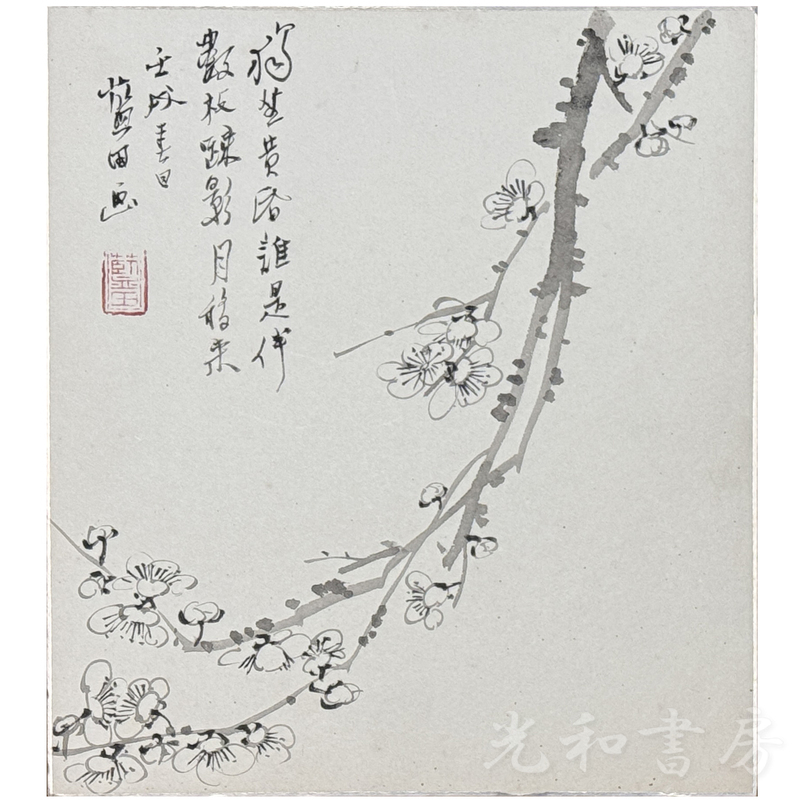 獨坐黄昏誰是伴
數枝疎影月移来
壬戌春日
藍田画
光和書房